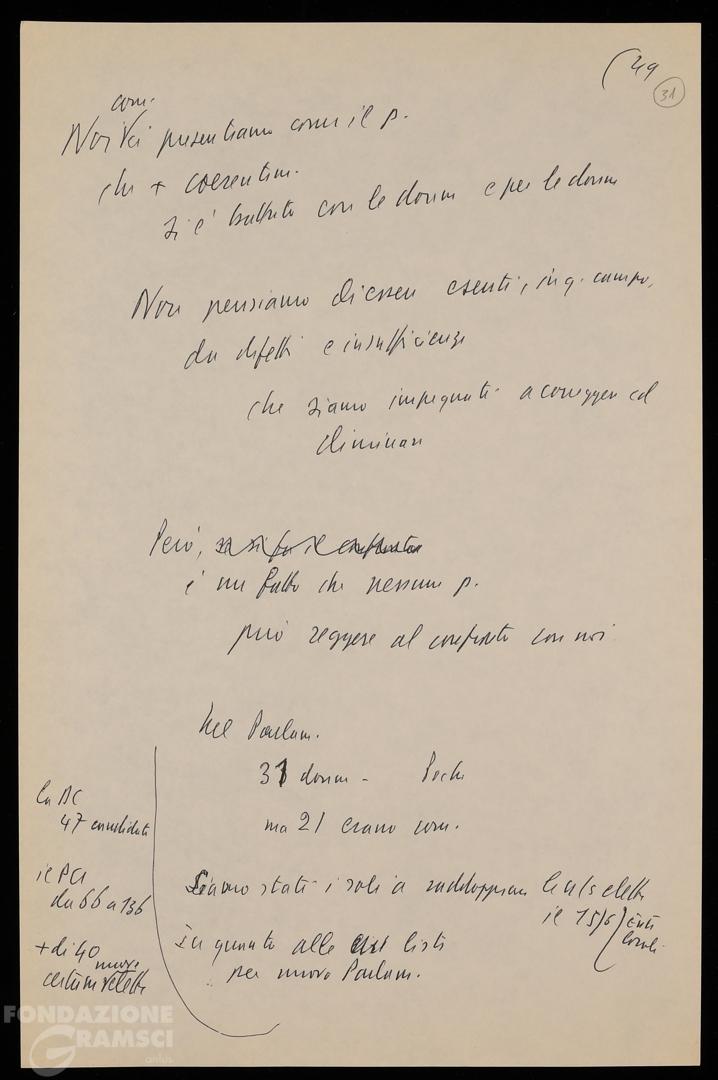 (49
31
com.
Noi vi presentiamo come il p.
che + coerentem.
si è battuto con le donne e per le donne
Non pensiamo di essere esenti, in q. campo,
da difetti e insufficienze
che siamo impegnati a correggere ed
eliminare
Però,
è un fatto che nessun p.
può reggere al confronto con noi
Nel Parlam.
31 donne - Poche
ma 21 erano com.
Siamo stati i soli a raddoppiare le elette
il 15/6
enti
locali
In quanto alle liste
per nuovo Parlam.
la DC
47 candidate
il PCI
da 66 a 136
+ di 40 nuove
certam. elette
FONDAZIONE
GRAMSCI
onlus